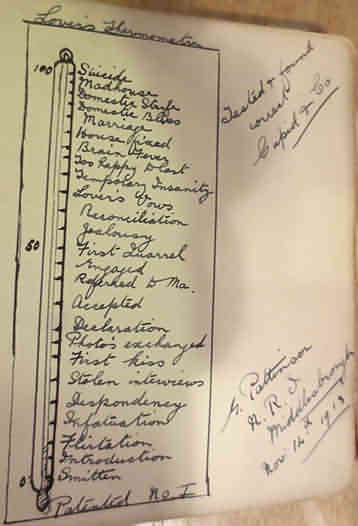 Lover's Thermometer
100
Suicide
Madhouse
Domestic Strife
Domestic Bliss
Marriage
House fixed
Brain Fever
Too happy to last
Temporary Insanity
Lover's Vows
Reconciliation
Jealousy
50
First Quarrel
Engaged
Referred to Ma.
Accepted
Declaration
Photo's exchanged
First kiss
Stolen interviews
Despondency
Infatuation
Flirtation
Introduction
0
Smitten
Patented No I
Tested & found
correct
Cupid & Co
G. Pattinson
N. R. I
Middlesbrough
Nov. 14. 1913